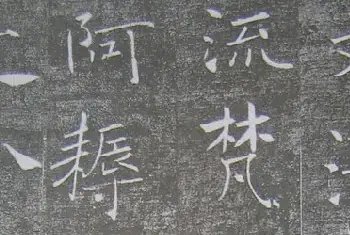 流梵
阿耨